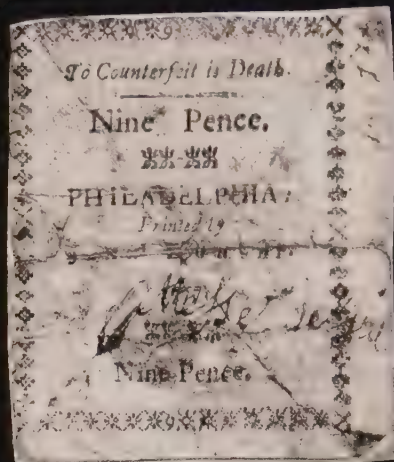 9
To Counterfeit is Death.
Nine Pence.
PHILADELPHIA:
Printed by
Nine Pence.
9